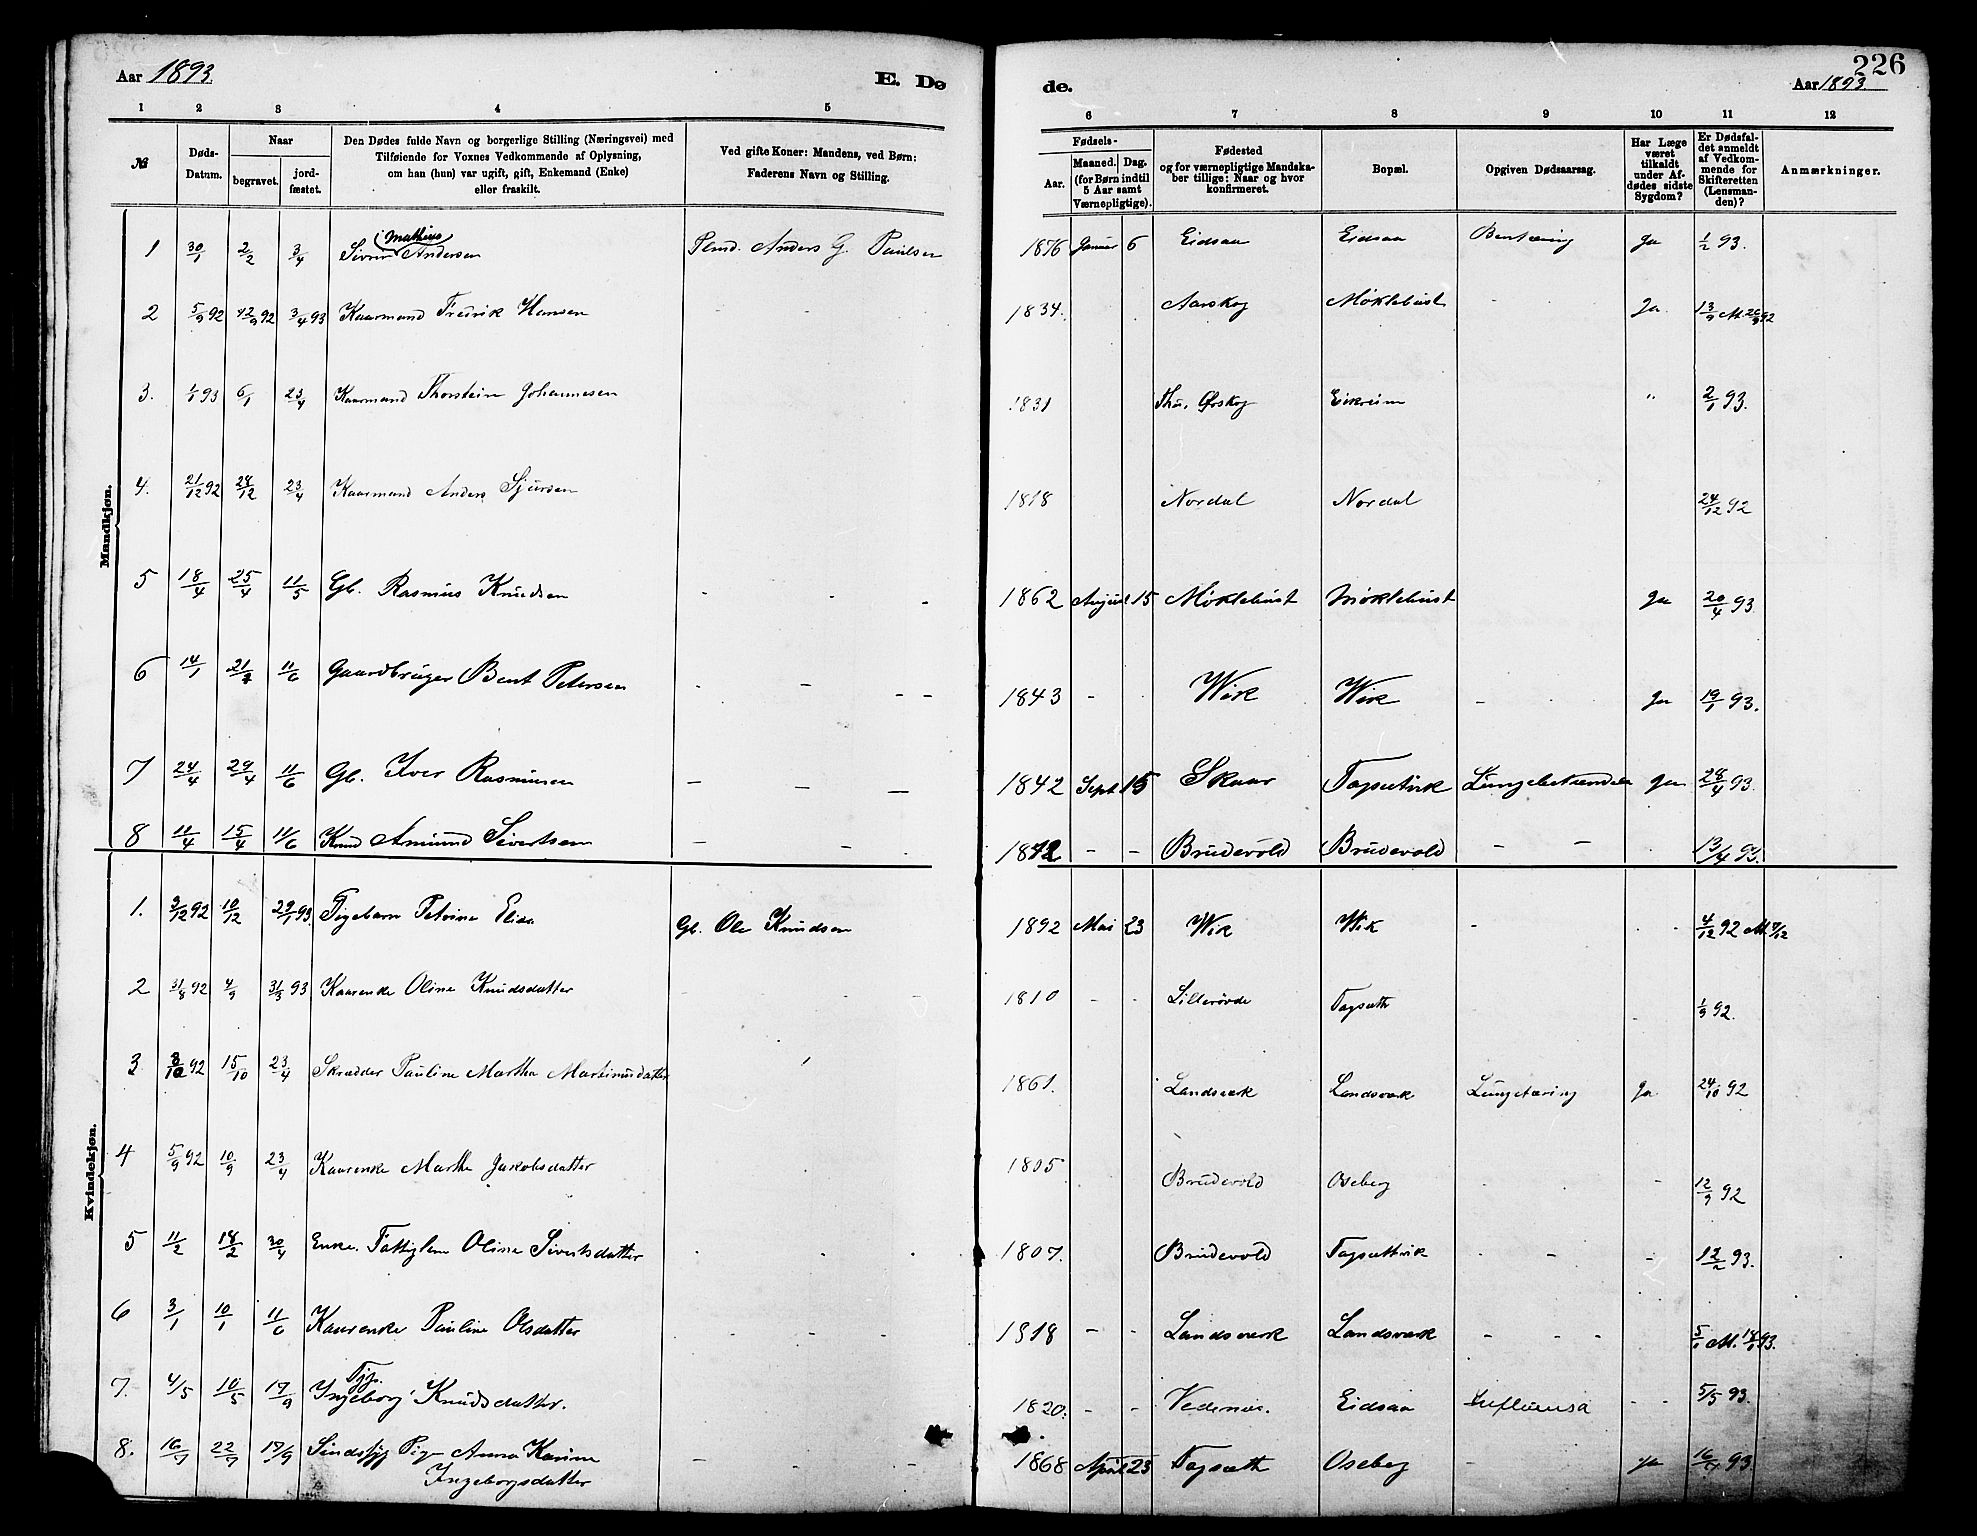 Aar 1893.
E. Dø
1 2 3 4 5
№
Døds-
Datum.
Naar
begravet.
jord-
fæstet.
Den Dødes fulde Navn og borgerlige Stilling (Næringsvei) med
Tilføiende for Voxnes Vedkommende af Oplysning,
om han (hun) var ugift, gift, Enkemand (Enke)
eller fraskilt.
Ved gifte Koner: Mandens, ved Børn:
Faderens Navn og Stilling.
Mandkjøn.
Mathias
1 30/1 2/2 3/4 Andersen Anders G. Paulsen
2 5/9 92 12/9 92 3/4 93 Kaarmand Fredrik Hansen
3. 1/1 93 6/1 23/4 Kaarmand Thorstein Johannesen
4. 21/12 92 28/12 23/4 Kaarmand Anders Sjursen
5 18/4 25/4 11/5 Gb. Rasmus Knudsen
6 14/1 21/1 11/6 Gaardbruger Bent Petersen
7 24/4 29/4 11/6 Gb. Iver Rasmusen
8 11/4 15/4 11/6 Knud Amund Sivertsen
Kvindekjøn.
1. 3/12 92 10/12 29/1 93. Pigebarn Petrine Elida Gb. Ole Knudsen
2 31/8 92 4/9 31/3 93 Kaarenke Oline Knudsdatter
3 8/10 92 15/10 23/4 Skrædder Pauline Martha Martinusdatter
4 5/9 92 10/9 23/4 Kaarenke Marthe Jakobsdatter
5 11/2 18/2 30/4 Enke. Fattiglem Oline Sivertsdatter
6 3/1 10/1 11/6 Kaarenke Pauline Olsdatter
7. 4/5 10/5 17/9 Ingeborg Knudsdatter.
8. 16/7 22/7 17/9 Sindssyg Pige Anna Karine
Ingeborgsdatter
226
de.
Aar 1893.
6 7 8 9 10 11 12
Fødsels-
Aar.
Maaned. Dag.
(for Børn indtil
5 Aar samt
Værnepligtige).
Fødested
og for værnepligtige Mandska-
ber tillige: Naar og hvor
konfirmeret.
Bopæl.
Opgiven Dødsaarsag.
Har Læge
været
tilkaldt
under Af-
dødes sidste
Sygdom?
Er Dødsfal-
det anmeldt
af Vedkom-
mende for
Skifteretten
(Lensman-
den)?
Anmærkninger.
1876 Januar 6 Eidsaa Eidsaa Bentæring Ja 1/2 93.
1834. Aarskog Møklebust Ja 13/9 M. 26/9 92
1831 Ørskog Eikreim " 2/1 93.
1818 Nordal Nordal 24/12 92
1862 August 15 Møklebust Møklebust Ja 20/4 93
1843 Wik Wik Ja 19/1 93.
1842 Sept 15 Skaar Tagsætvik Lungebetændelse Ja 28/4 93.
1842 Brudevold Brudevold 13/4 93.
1892 Mai 23 Wik Wik 4/12 92 M. 7/12
1810 Lillerøvde Tagsæth 1/9 92.
1861. Landsværk Landsværk Lungetæring Ja 24/10 92
1805 Brudevold Oseberg 12/9 92
1807. Brudevold Tagsætvik 12/2 93.
1818 Landsværk Landsværk 5/1 M. 18/1 93.
1820. Vedernes. Eidsaa Influensa 5/5 93.
1868 April 23 Tagsæth Oseberg Ja 16/7 93